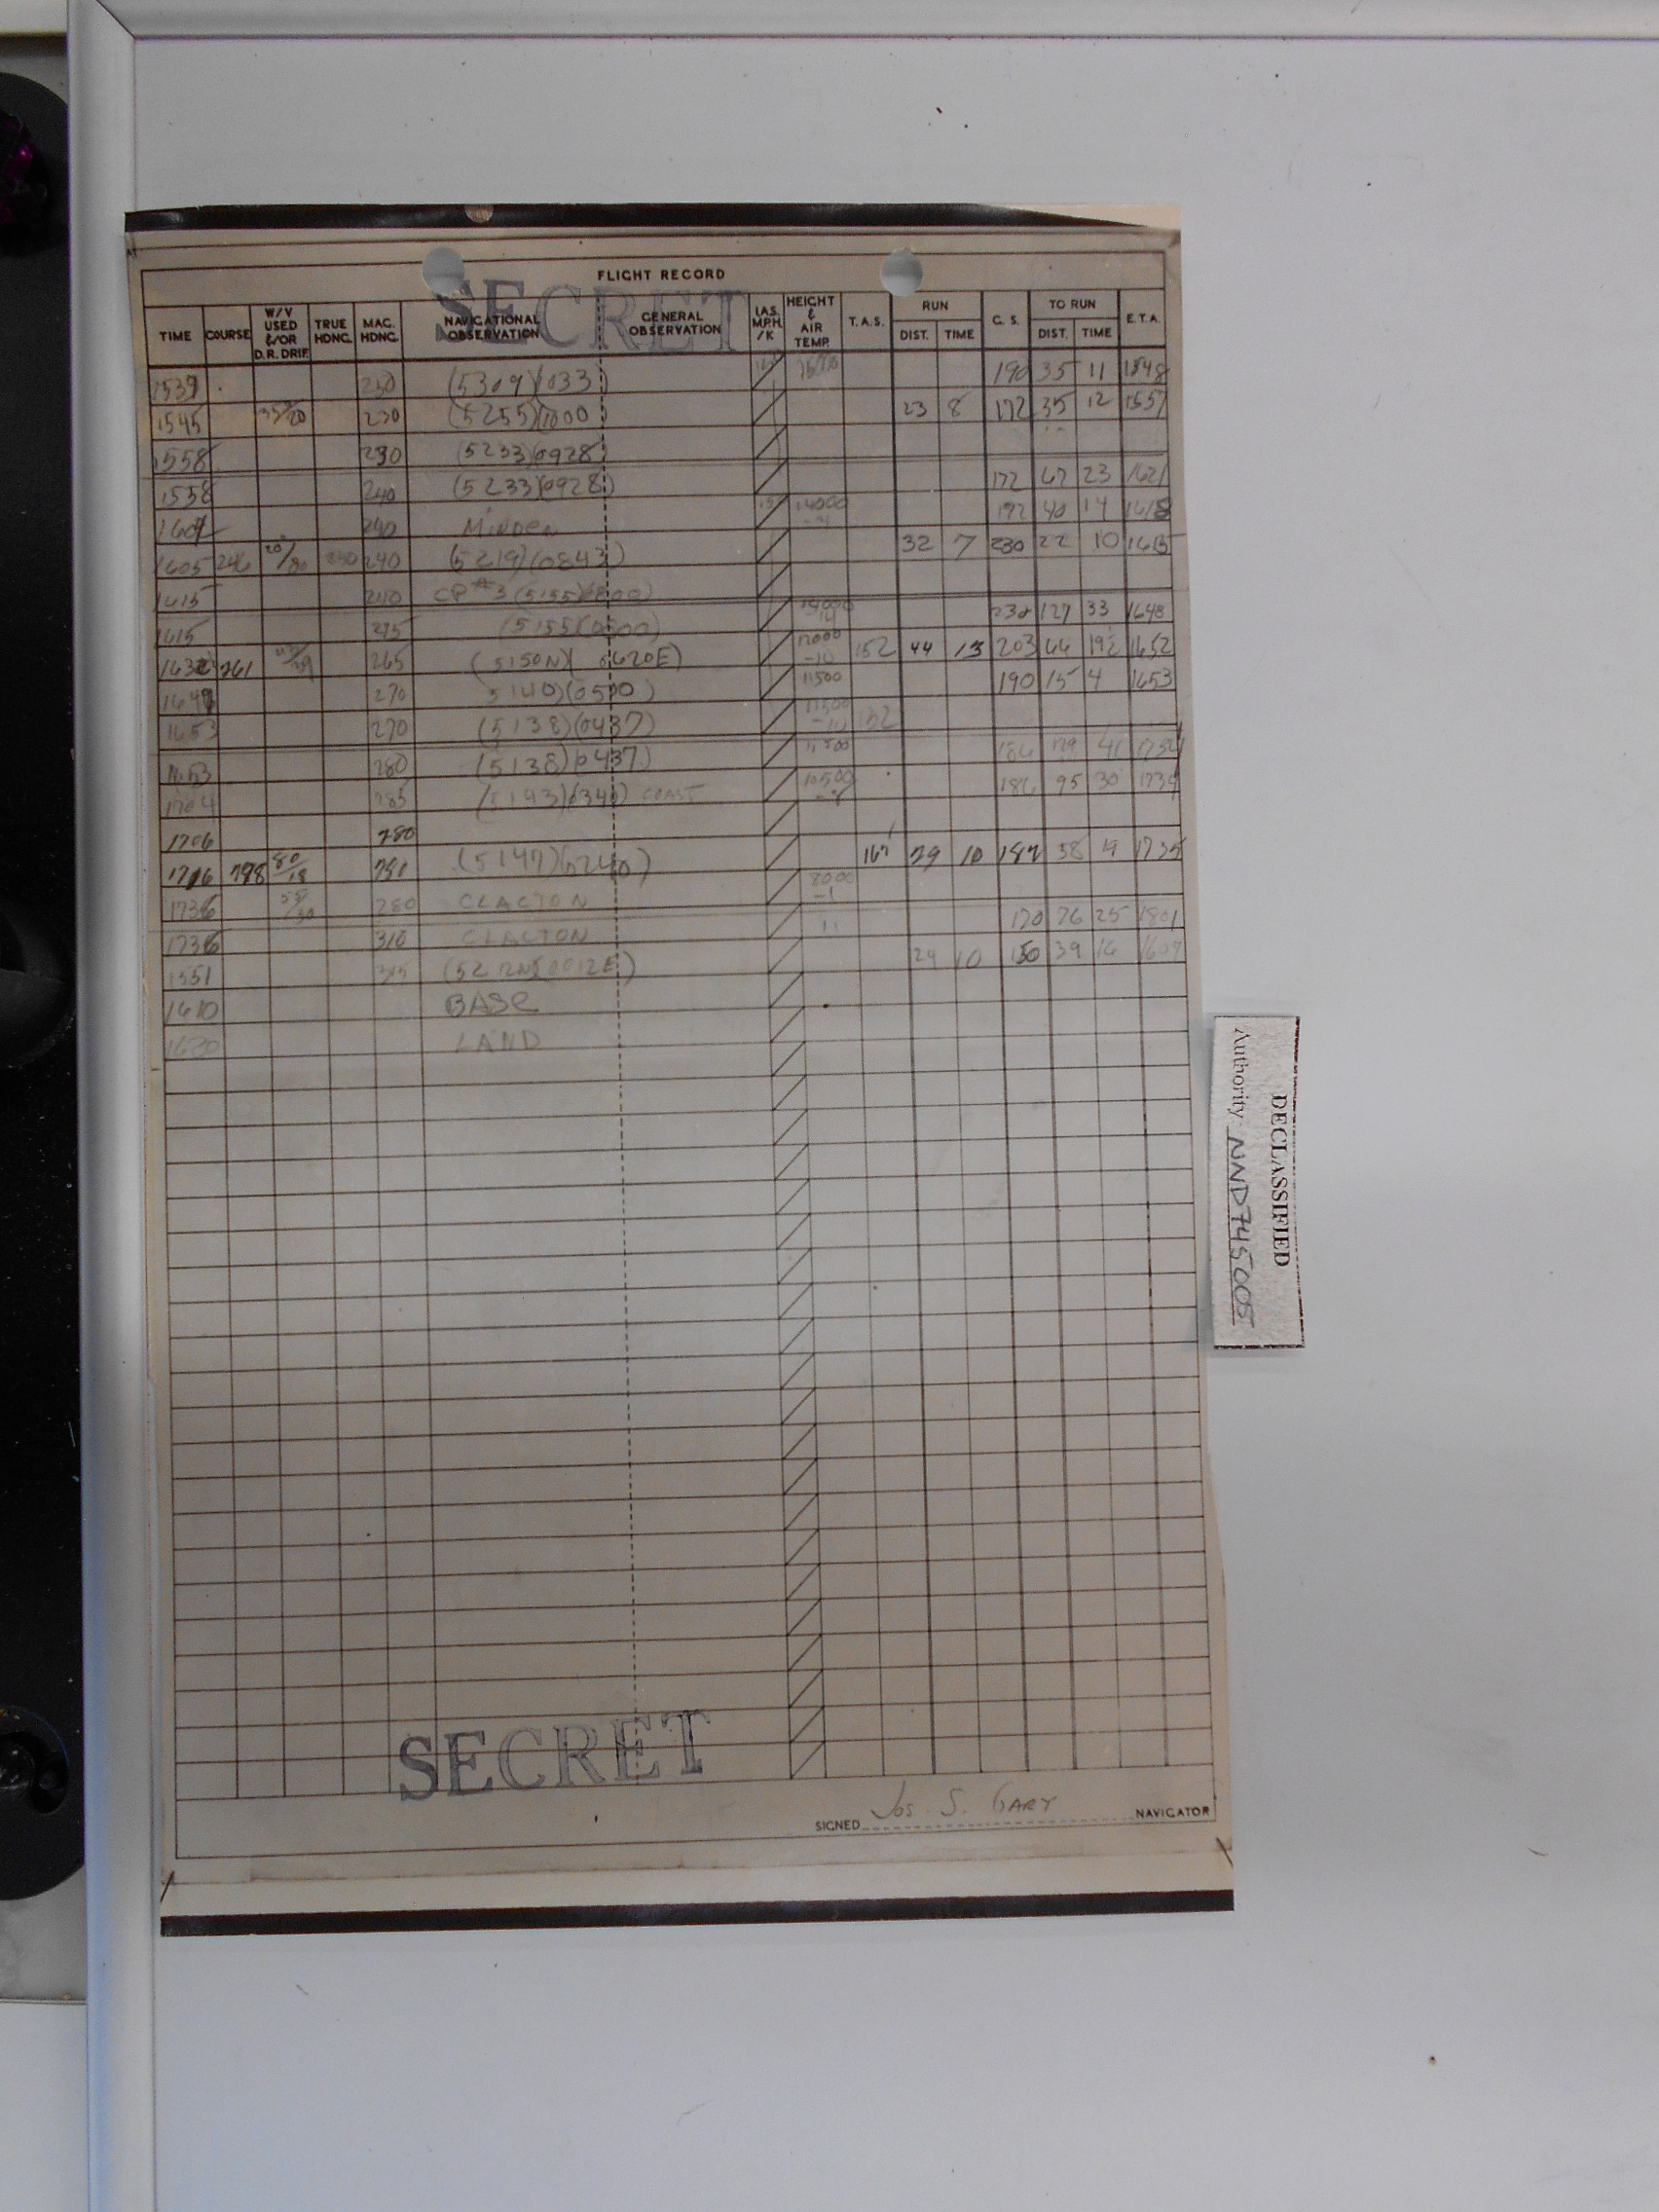 FLIGHT RECORD
SECRET
TIME COURSE W/V USED &/OR D.R. DRIF. TRUE HDNG. MAG. HDNG. NAVIGATIONAL OBSERVATION GENERAL OBSERVATION I.A.S. M.P.H. /K HEIGHT & AIR TEMP. T.A.S. RUN DIST. TIME G. S. TO RUN DIST. TIME E.T.A.
1537 230 (5309)(1033) 190 35 11 1548
1545 230 (5255)(1000) 23 8 172 35 12 1557
1558 230 (5233)(0928)
1558 240 (5233)(0928) 172 67 23 1621
240 MINDEN 14000 192 40 14 1618
1605 246 240 (5219)(0843) 32 7 230 22 10 1615
1615 240 CP #3 (5155)(0800)
1615 275 (5155)(0800) 230 127 33 1648
261 265 (5150N)(0620E) 12000 -10 152 44 13 203 66 19½ 1652
270 5140)(0510) 11500 190 15 4 1653
1653 270 (5138)(0437) 11500 -10 152
1653 280 (5138)(0437) 11500 186 129 41
1704 285 (5143)(0340) COAST 10500 186 95 30 1734
1706 280
1716 80/18 (5147)(0240) 167 29 10 187 58 19 1735
1736 55/30 280 CLACTON 8000 -1
1736 310 CLACTON 11 170 76 25 1801
1551 315 (5212N)(0012E) 24 10 150 39 16 1607
1610 BASE
1620 LAND
SECRET
SIGNED Jos. S. GARY NAVIGATOR
DECLASSIFIED
Authority NND745005